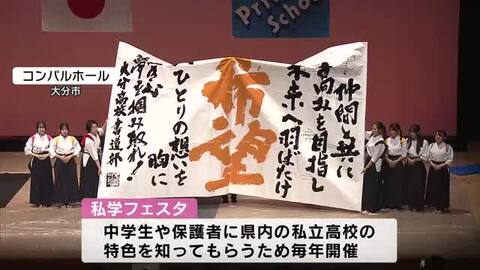 Pri
School
コンパルホール
大分市
仲間と共に
高みを目指し
未来へ羽ばたけ
希望
ひとりの想いを
胸に
夢を掴み取れ!
大分高校書道部
私学フェスタ
中学生や保護者に県内の私立高校の
特色を知ってもらうため毎年開催